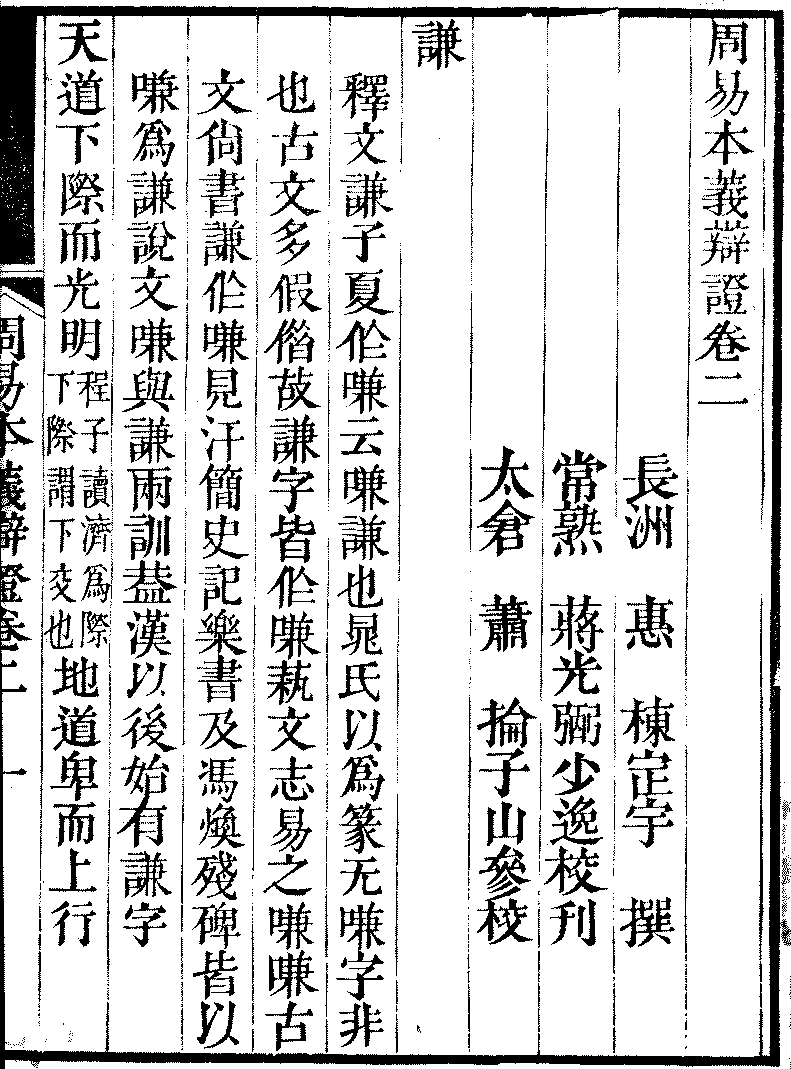 周易本義辯證卷二
長洲　惠　棟定宇　撰
常熟　蔣光弼少逸校刊
太倉　蕭　掄子山參校
謙
釋文謙子夏作嗛云嗛謙也晁氏以爲篆无嗛字非
也古文多假偺故謙字皆作嗛蓺文志易之嗛嗛古
文尙書謙作嗛見汗簡史記樂書及馮煥殘碑皆以
嗛爲謙說文嗛與謙兩訓葢漢以後始有謙字
天道下際而光明程子讀濟爲際下際謂下交也地道卑而上行
周易本義辯證卷二　一